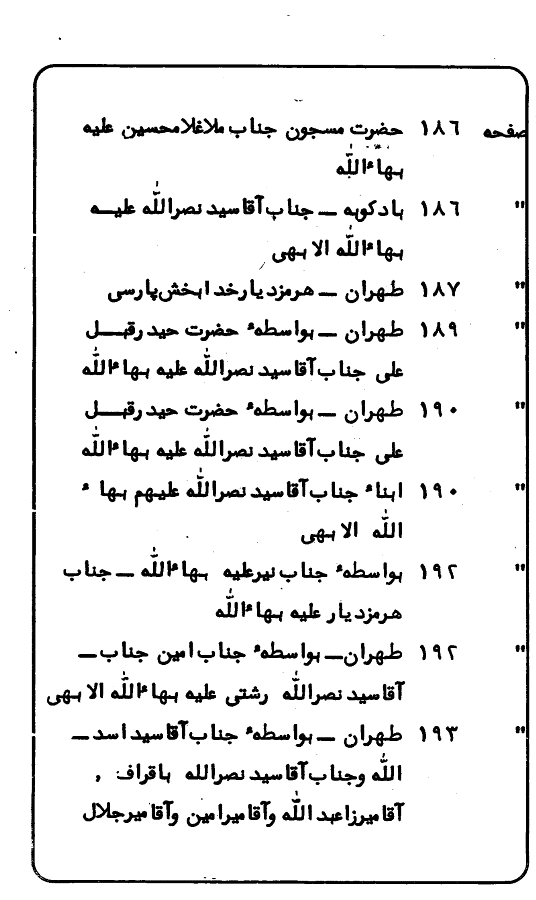 صفحه ١٨٦ حضرت مسجون جناب ملاغلامحسین علیه
بهاءاللّه
" ١٨٦ بادکوبه ــ جناب آقاسید نصراللّه علیـه
بهاءاللّه الابهی
" ١٨٧ طهران ــ هرمزدیارخدابخش پارسی
" ١٨٩ طهران ــ بواسطهء حضرت حیدرقبـل
علی جناب آقاسید نصراللّه علیه بهاءاللّه
" ١٩٠ طهران ــ بواسطهء حضرت حیدرقبـل
علی جناب آقاسید نصراللّه علیه بهاءاللّه
" ١٩٠ ابناء جناب آقاسید نصراللّه علیهم بهاء
اللّه الابهی
" ١٩٢ بواسطهء جناب نیرعلیه بهاءاللّه ــ جناب
هرمزدیار علیه بهاءاللّه
" ١٩٢ طهران ــ بواسطهء جناب امین جناب ــ
آقاسید نصراللّه رشتی علیه بهاءاللّه الابهی
" ١٩٣ طهران ــ بواسطهء جناب آقاسید اسد ــ
اللّه وجناب آقاسید نصرالله باقراف و
آقامیرزاعبداللّه وآقامیرامین وآقامیرجلال